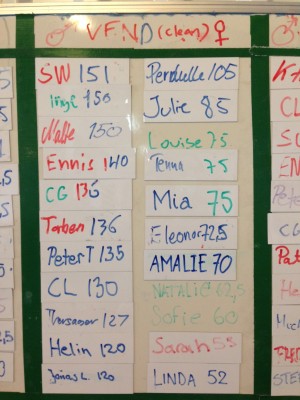 ♂ VEND (clean) ♀
SW 151
150
Malte 150
Ennis 140
CG 136
Torben 136
Peter T 135
CL 130
127
Helin 120
Jonas L. 120
Pernille 105
Julie 85
Louise 75
75
Mia 75
Eleonor 72,5
AMALIE 70
NATALIE 62,5
Sofie 60
Sarah 55
LINDA 52